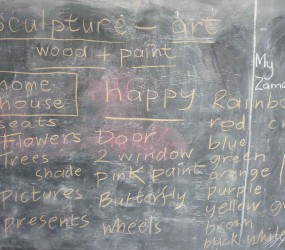 Sculpture - art
wood + paint
home
house
seats
Flowers
Trees
shade
pictures
presents
happy
Door
2 window
pink paint
Butterfly
wheels
Rainbo
red
blue
green
orange
purple
yellow
brown
black white
My
Zama